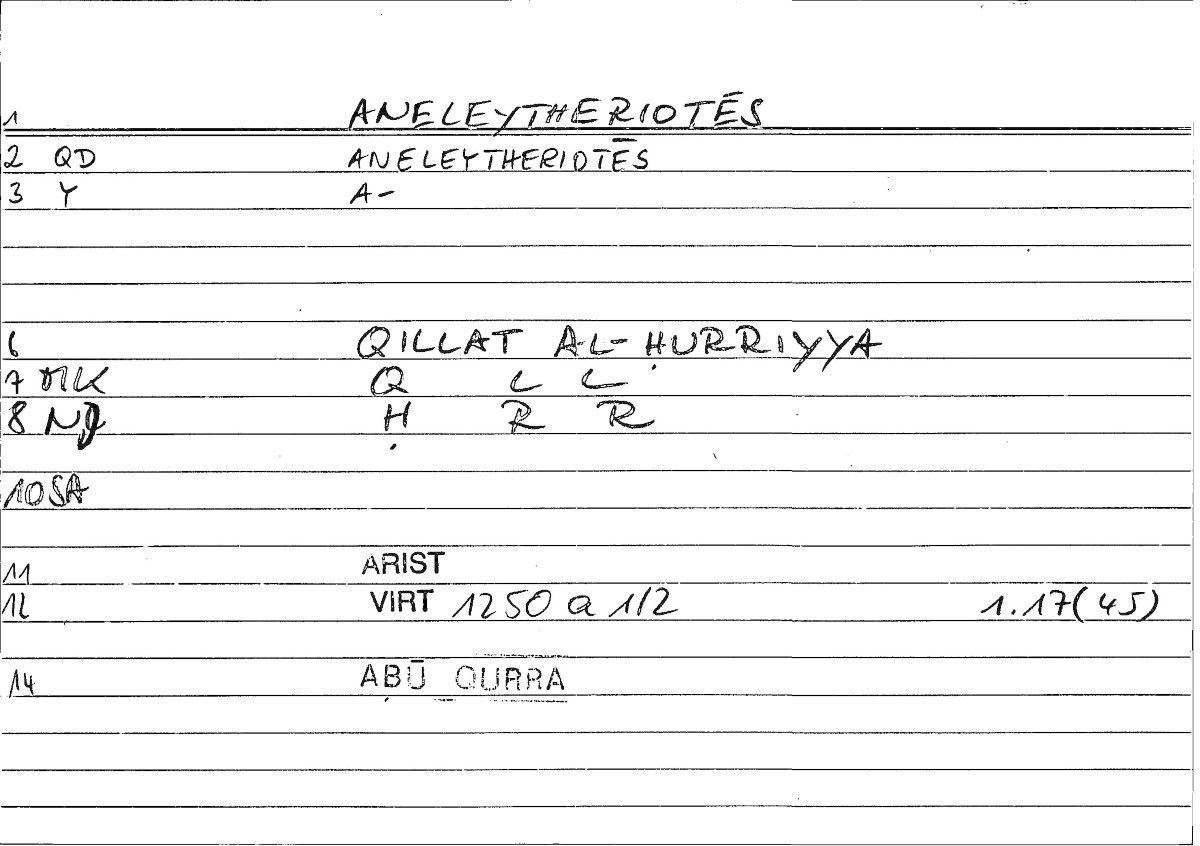 1 ANELEYTHERIOTĒS
2 QD ANELEYTHERIOTĒS
3 Y A-
6 QILLAT AL-ḤURRIYYA
7 MK Q L L
8 Ḥ R R
10 SA
11 ARIST
12 VIRT 1250 a 1/2 1.17(45)
14 ABŪ QURRA